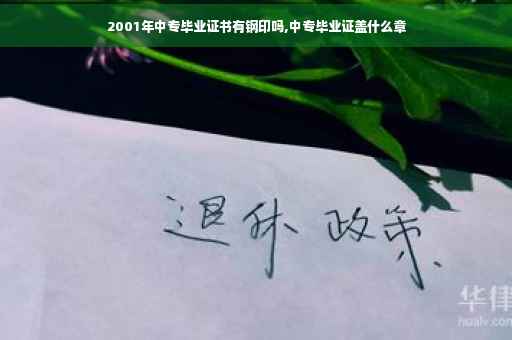 2001年中专毕业证书有钢印吗,中专毕业证盖什么章
退休 政策
华律
hualv.com